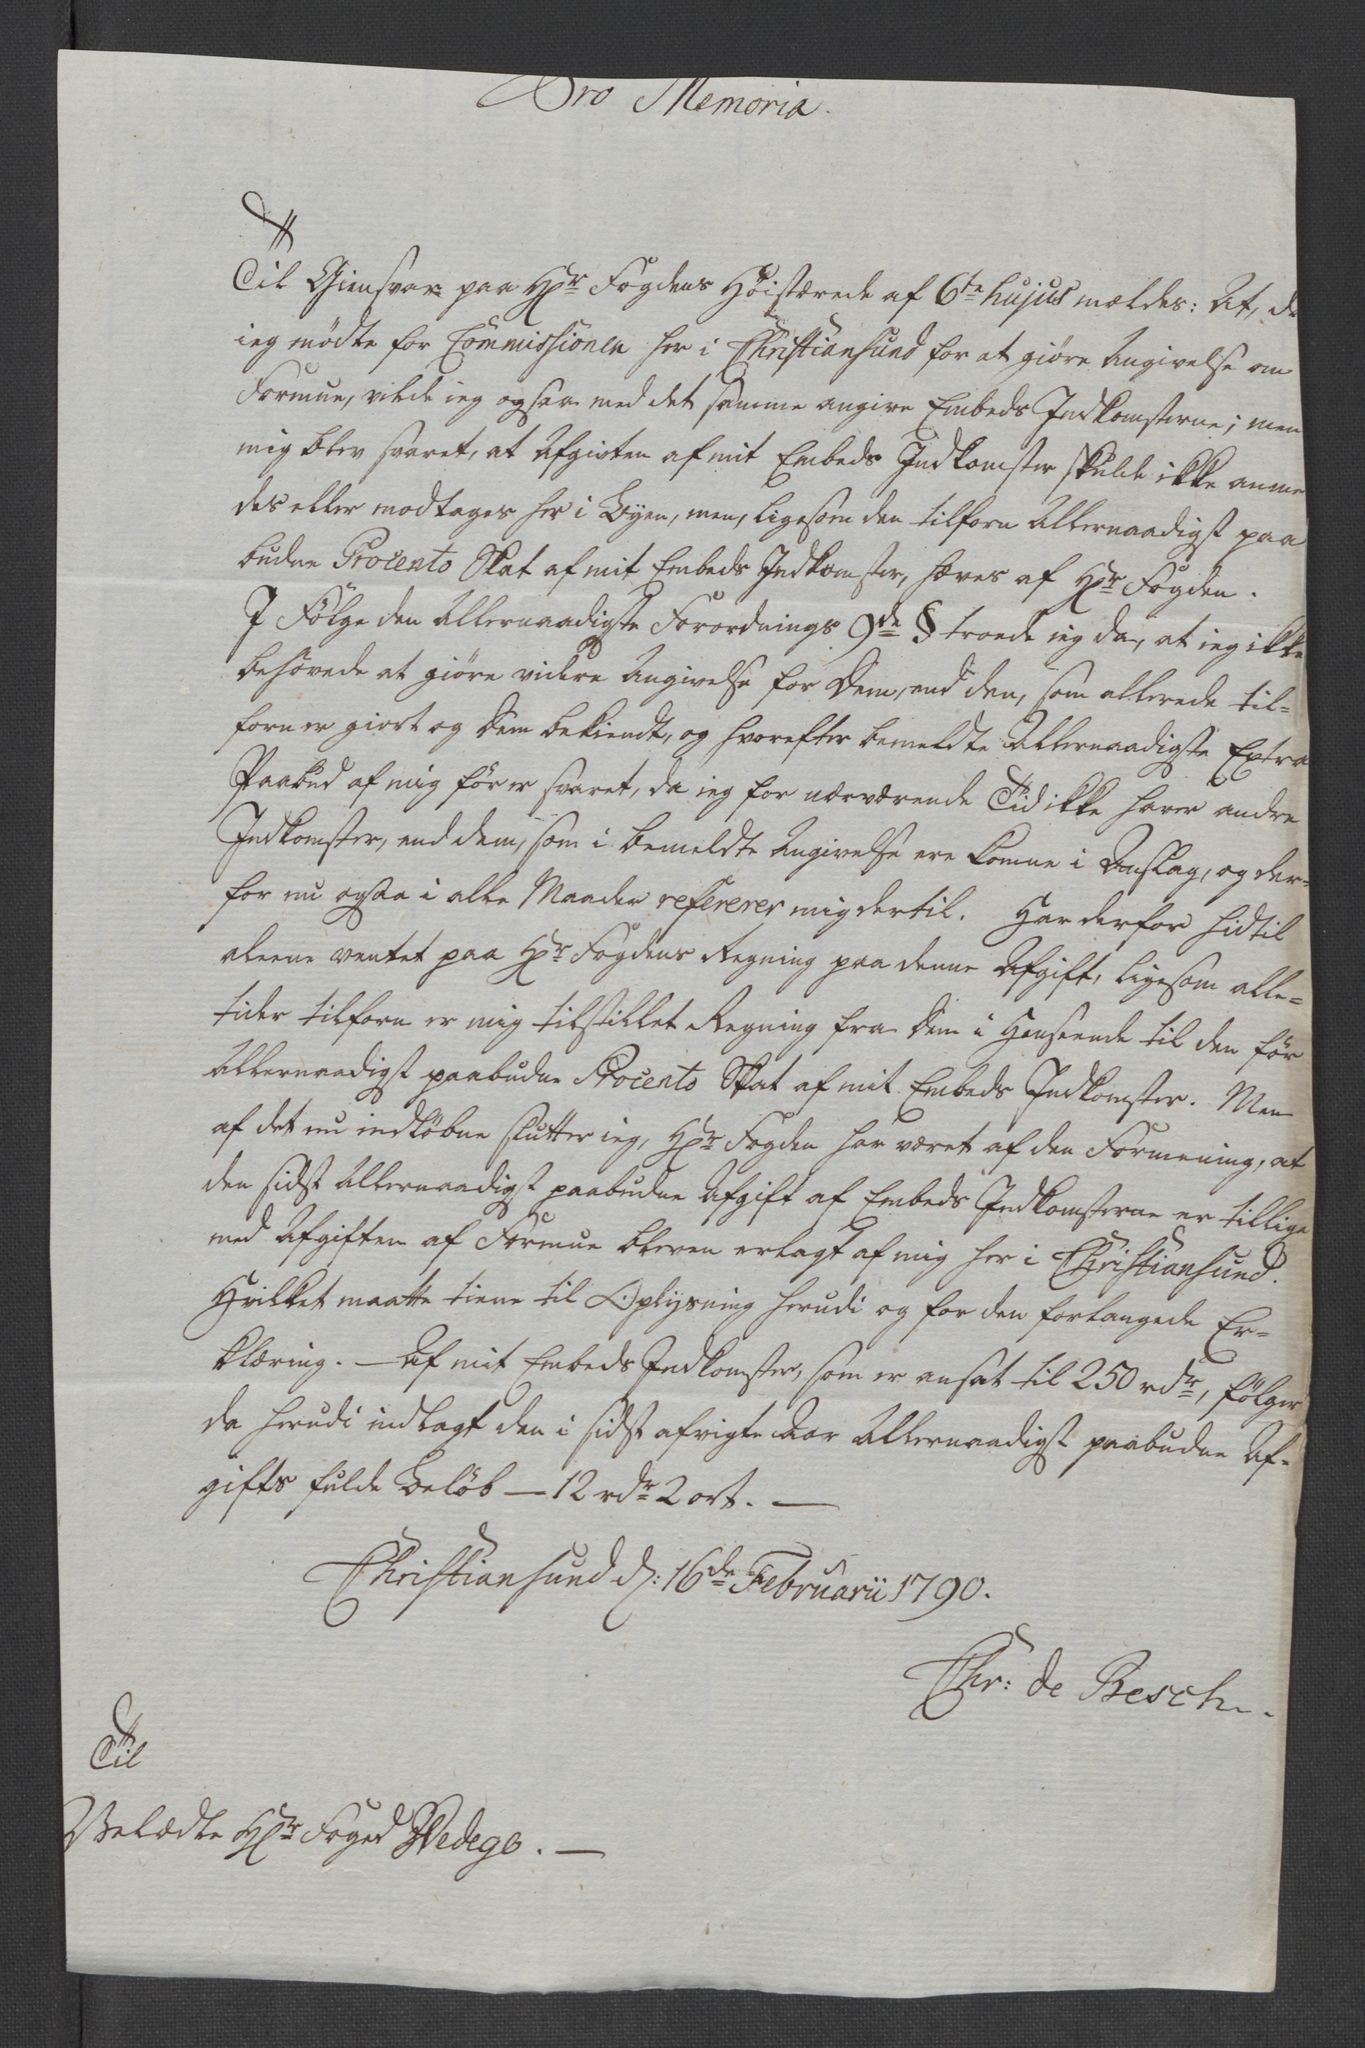 Pro Memoria.
Til Giensvar paa Hr Fogdens Høistærede af 6te hujus mældes: At, da
ieg mødte for Commissionen her i Christiansund for at giøre Angivelse om
Formue, vilde ieg ogsaa med det samme angive Embeds Indkomsterne; men
mig blev svaret, at Afgivten af mit Embeds Indkomster skulde ikke anmel
des eller modtages her i Byen, men, ligesom den tilforn Allernaadigst paa
budne Procento Skat af mit Embeds Indkomster, hæves af Hr Fogden.
I Følge den Allernaadigste Forordnings 9de § troede ieg da, at ieg ikke
behøvede at giøre videre Angivelse for Dem, end den, som allerede til-
forn er giort og Dem bekiendt, og hvorefter bemeldte Allernaadigste Extra
Paabud af mig før er svaret, da ieg for nærværende Tid ikke haver andre
Indkomster, end dem, som i bemeldte Angivelse ere komne i Anslag, og der-
for nu ogsaa i alle Maader refererer mig dertil. Har derfor hidtil
aleene ventet paa Hr Fogdens Regning paa denne Afgift, ligesom alle-
tider tilforn er mig tilstillet Regning fra Dem i Henseende til den før
Allernaadigst paabudne Procento Skat af mit Embeds Indkomster. Men
af det nu indløbne slutter ieg, Hr Fogden har været af den Formening, at
den sidst Allernaadigst paabudne Afgift af Embeds Indkomsterne er tillige
med Afgiften af Formue bleven erlagt af mig her i Christiansund.
Hvilket maatte tiene til Oplysning herudi og for den forlangede Er-
klæring. — Af mit Embeds Indkomster, som er ansat til 250 rdr, følger
da herudi indlagt den i sidst afvigte Aar Allernaadigst paabudne Af-
gifts fulde Beløb — 12 rdr 2 ort. —
Christiansund d: 16de Februarii 1790.
Chr: de Besche.
Til
Velædle Hr Foged Wedege. —